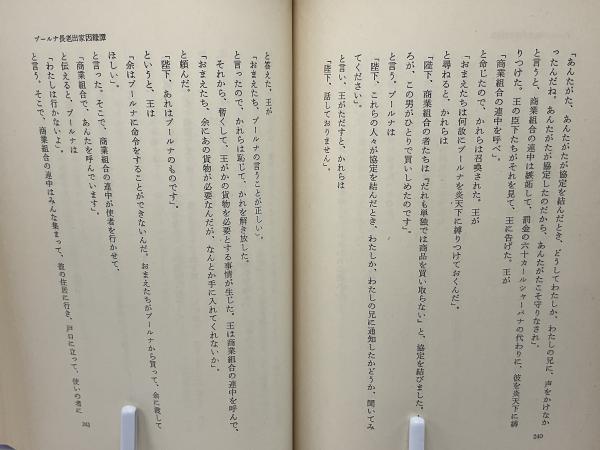 「あんたがた、あんたがたが協定を結んだとき、どうしてわたしか、わたしの兄に、声をかけなか
ったんだね。あんたがたが協定したのだから、あんたがたこそ守りなされ」
と言うと、商業組合の連中は嫉妬して、罰金の六十カールシャーパナの代わりに、彼を炎天下に縛
りつけた。王の臣下たちがそれを見て、王に告げた。王が
「商業組合の連中を呼べ」
と命じたので、かれらは召喚された。王が
「おまえたちは何故にプールナを炎天下に縛りつけておくんだ」
と尋ねると、かれらは
「陛下、商業組合の者たちは『だれも単独では商品を買い取らない』と、協定を結びました。とこ
ろが、この男がひとりで買いしめたのです」
と言う。プールナは
「陛下、これらの人々が協定を結んだとき、わたしか、わたしの兄に通知したかどうか、聞いてみ
てください」
と言い、王がただすと、かれらは
「陛下、話しておりません」
240
プールナ長老出家因縁譚
と答えた。王が
「おまえたち、プールナの言うことが正しい」
と言ったので、かれらは恥じて、かれを解き放した。
それから、暫くして、王がかの貨物を必要とする事情が生じた。王は商業組合の連中を呼んで、
「おまえたち、余にあの貨物が必要なんだが、なんとか手に入れてくれないか」
と頼んだ。
「陛下、あれはプールナのものです」
というと、王は
「余はプールナに命令をすることができないんだ。おまえたちがプールナから買って、余に渡して
ほしい」
と言った。そこで、商業組合の連中が使者を行かせて、
「商業組合で、あんたを呼んでいます」
と伝えると、プールナは
「わたしは行かないよ」
と言う。そこで、商業組合の連中はみんな集まって、彼の住居に行き、戸口に立って、使いの者に
241